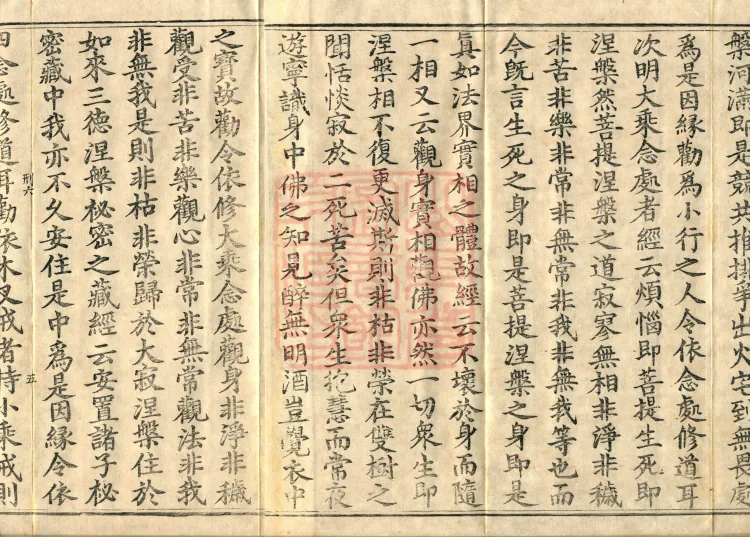 槃河滿即是競共推排爭出火宅到無畏處
爲是因緣勸爲小行之人令依念處修道耳
次明大乘念處者經云煩惱即菩提生死即
涅槃然菩提涅槃之道寂寥無相非淨非穢
非苦非樂非常非無常非我非無我等也而
今既言生死之身即是菩提涅槃之身即是
眞如法界實相之體故經云不壞於身而隨
一相又云觀身實相觀佛亦然一切衆生即
涅槃相不復更滅斯則非枯非榮在雙樹之
閒恬惔寂於二死苦矣但衆生抱慧而常夜
遊寧識身中佛之知見醉無明酒豈覺衣中
之寶故勸令依修大乘念處觀身非淨非穢
觀受非苦非樂觀心非常非無常觀法非我
非無我是則非枯非榮歸於大寂涅槃住於
如來三德涅槃秘密之藏經云安置諸子秘
密藏中我亦不久安住是中爲是因緣令依
刑六 五
四念處修道耳勸依木叉戒者持小乘戒則